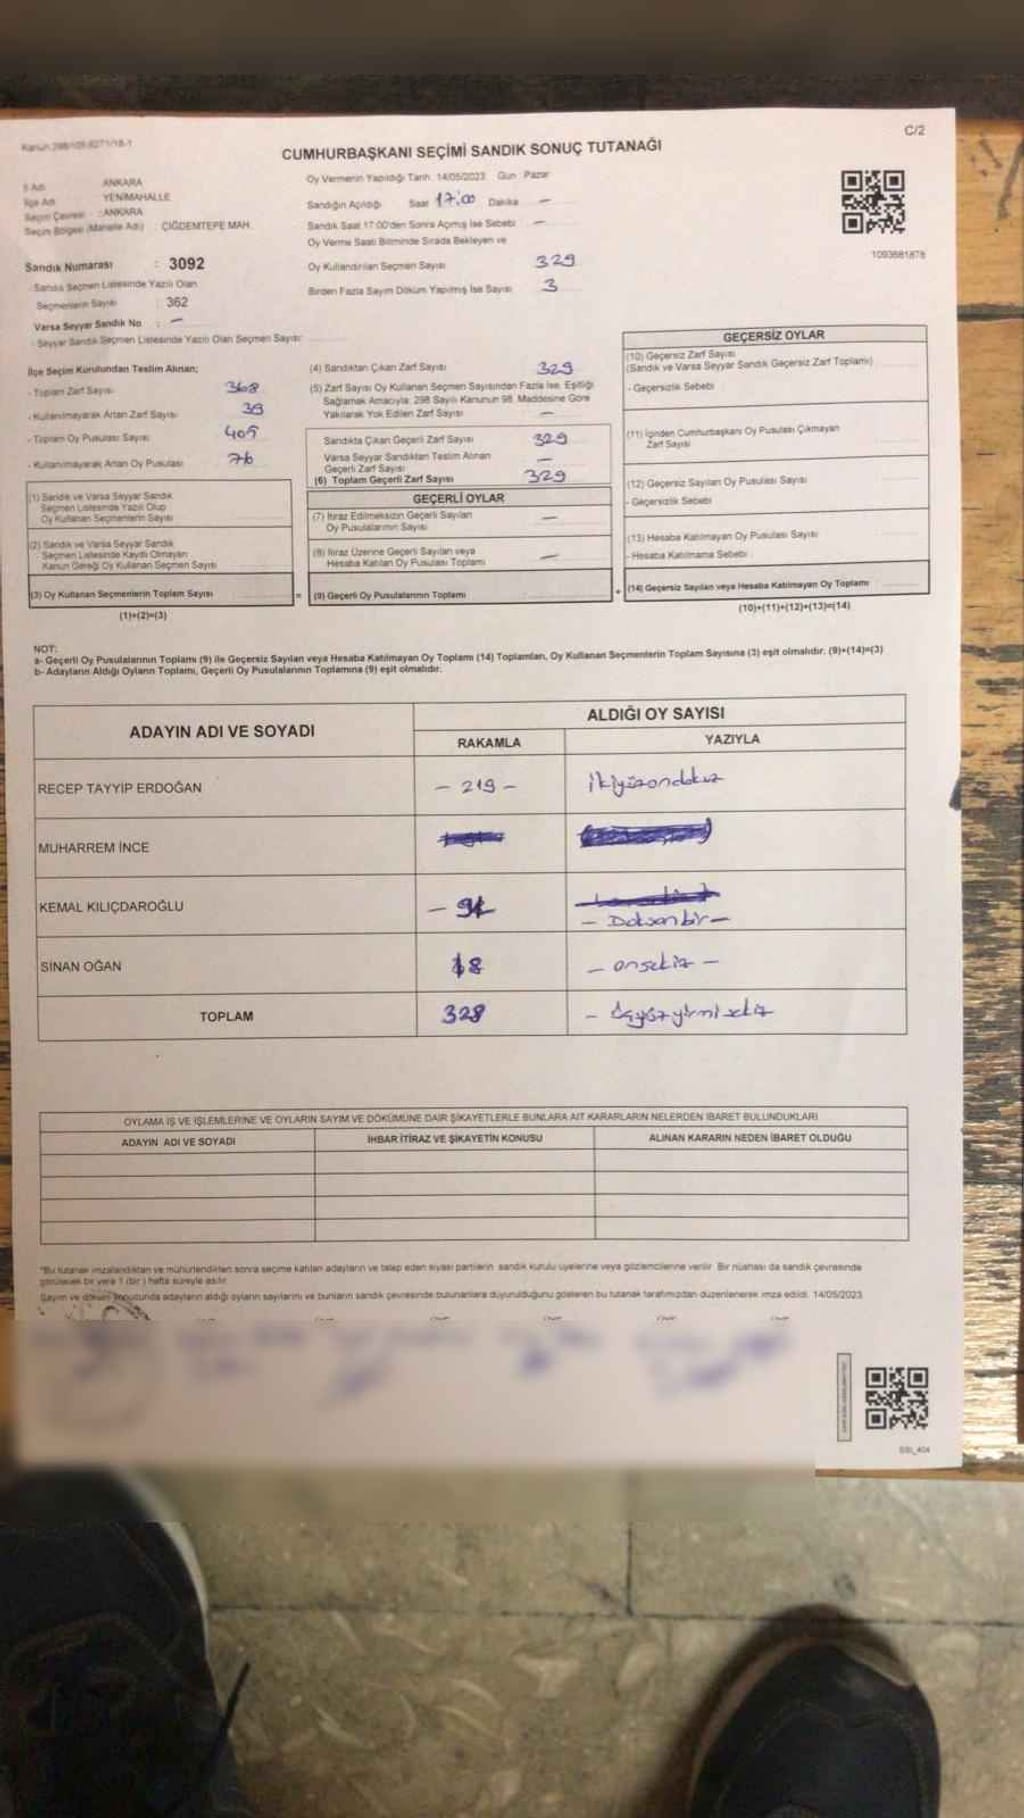 C/2
CUMHURBAŞKANI SEÇİMİ SANDIK SONUÇ TUTANAĞI
İl Adı : ANKARA
İlçe Adı : YENİMAHALLE
Seçim Çevresi : ANKARA
Seçim Bölgesi (Mahalle Adı) : ÇİĞDEMTEPE MAH.
Oy Vermenin Yapıldığı Tarih: 14/05/2023 Gün : Pazar
Sandığın Açıldığı Saat 17:00 Dakika —
Sandık Saat 17:00'den Sonra Açılmış İse Sebebi : —
Oy Verme Saati Bitiminde Sırada Bekleyen ve
Oy Kullandırılan Seçmen Sayısı 329
Birden Fazla Sayım Döküm Yapılmış İse Sayısı: 3
1093681878
Sandık Numarası : 3092
- Sandık Seçmen Listesinde Yazılı Olan
Seçmenlerin Sayısı : 362
Varsa Seyyar Sandık No : —
- Seyyar Sandık Seçmen Listesinde Yazılı Olan Seçmen Sayısı:
İlçe Seçim Kurulundan Teslim Alınan;
- Toplam Zarf Sayısı 368
- Kullanılmayarak Artan Zarf Sayısı 39
- Toplam Oy Pusulası Sayısı 405
- Kullanılmayarak Artan Oy Pusulası 76
(1) Sandık ve Varsa Seyyar Sandık
Seçmen Listesinde Yazılı Olup
Oy Kullanan Seçmenlerin Sayısı
(2) Sandık ve Varsa Seyyar Sandık
Seçmen Listesinde Kayıtlı Olmayan
Kanun Gereği Oy Kullanan Seçmen Sayısı
(3) Oy Kullanan Seçmenlerin Toplam Sayısı
(1)+(2)=(3)
(4) Sandıktan Çıkan Zarf Sayısı 329
(5) Zarf Sayısı Oy Kullanan Seçmen Sayısından Fazla İse, Eşitliği
Sağlamak Amacıyla; 298 Sayılı Kanunun 98. Maddesine Göre
Yakılarak Yok Edilen Zarf Sayısı —
Sandıkta Çıkan Geçerli Zarf Sayısı 329
Varsa Seyyar Sandıktan Teslim Alınan
Geçerli Zarf Sayısı —
(6) Toplam Geçerli Zarf Sayısı 329
GEÇERLİ OYLAR
(7) İtiraz Edilmeksizin Geçerli Sayılan
Oy Pusulalarının Sayısı —
(8) İtiraz Üzerine Geçerli Sayılan veya
Hesaba Katılan Oy Pusulası Toplamı —
= (9) Geçerli Oy Pusulalarının Toplamı
GEÇERSİZ OYLAR
(10) Geçersiz Zarf Sayısı
(Sandık ve Varsa Seyyar Sandık Geçersiz Zarf Toplamı)
- Geçersizlik Sebebi
(11) İçinden Cumhurbaşkanı Oy Pusulası Çıkmayan
Zarf Sayısı
(12) Geçersiz Sayılan Oy Pusulası Sayısı
- Geçersizlik Sebebi
(13) Hesaba Katılmayan Oy Pusulası Sayısı
- Hesaba Katılmama Sebebi
+ (14) Geçersiz Sayılan veya Hesaba Katılmayan Oy Toplamı
(10)+(11)+(12)+(13)=(14)
NOT:
a- Geçerli Oy Pusulalarının Toplamı (9) ile Geçersiz Sayılan veya Hesaba Katılmayan Oy Toplamı (14) Toplamları, Oy Kullanan Seçmenlerin Toplam Sayısına (3) eşit olmalıdır. (9)+(14)=(3)
b- Adayların Aldığı Oyların Toplamı, Geçerli Oy Pusulalarının Toplamına (9) eşit olmalıdır.
ADAYIN ADI VE SOYADI
ALDIĞI OY SAYISI
RAKAMLA YAZIYLA
RECEP TAYYİP ERDOĞAN - 219 - ikiyüzondokuz
MUHARREM İNCE
KEMAL KILIÇDAROĞLU - 91
- Doksanbir -
SİNAN OĞAN 18 - onsekiz -
TOPLAM 328 - üçyüzyirmisekiz
OYLAMA İŞ VE İŞLEMLERİNE VE OYLARIN SAYIM VE DÖKÜMÜNE DAİR ŞİKAYETLERLE BUNLARA AİT KARARLARIN NELERDEN İBARET BULUNDUKLARI
ADAYIN ADI VE SOYADI İHBAR İTİRAZ VE ŞİKAYETİN KONUSU ALINAN KARARIN NEDEN İBARET OLDUĞU
*Bu tutanak imzalandıktan ve mühürlendikten sonra seçime katılan adayların ve talep eden siyasi partilerin sandık kurulu üyelerine veya gözlemcilerine verilir. Bir nüshası da sandık çevresinde
görülecek bir yere 1 (bir) hafta süreyle asılır.
Sayım ve döküm sonucunda adayların aldığı oyların sayılarını ve bunların sandık çevresinde bulunanlara duyurulduğunu gösteren bu tutanak tarafımızdan düzenlenerek imza edildi. 14/05/2023
SSI_404